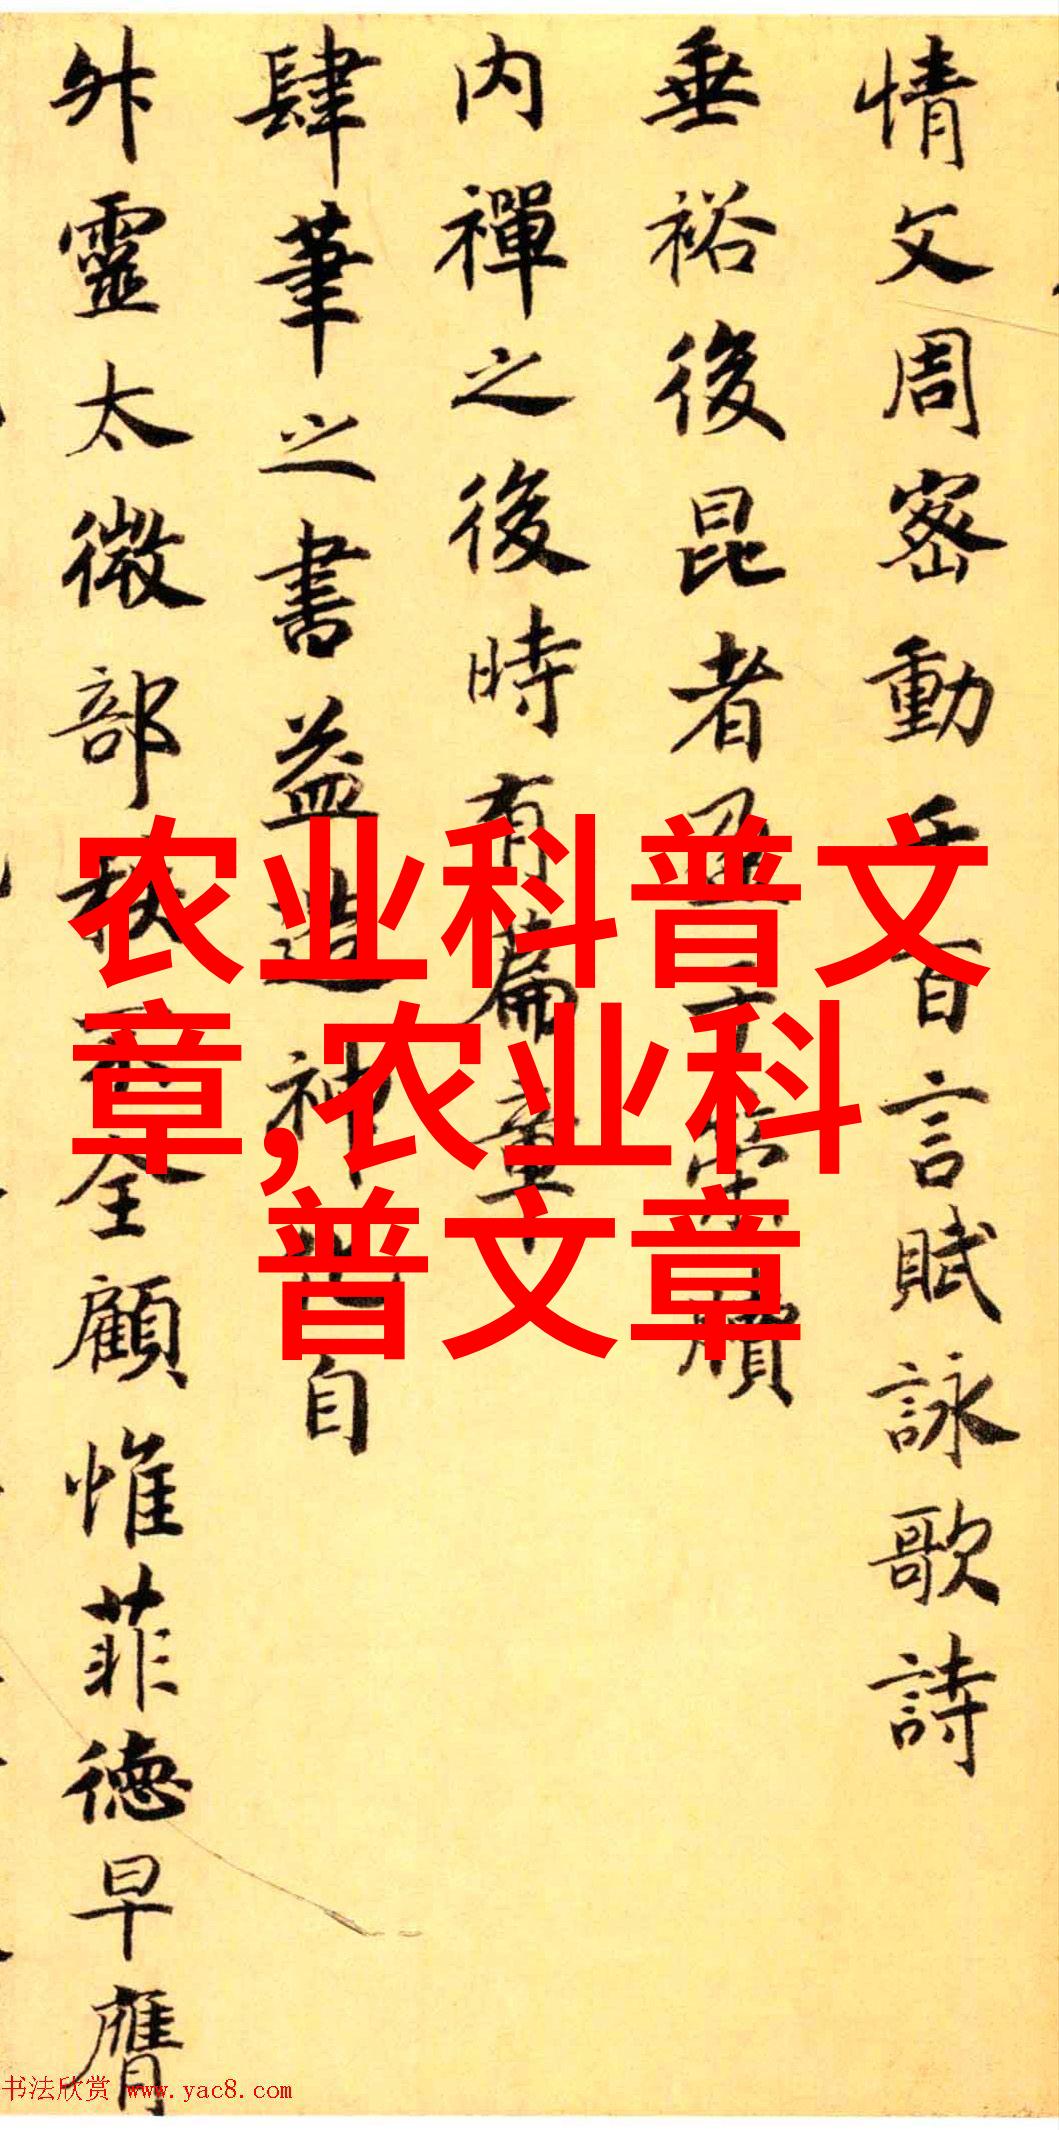 农业科普文
章,农业科
普文章
情文周密動千百言賦詠歌詩
垂裕後昆者
内禪之後時有篇章
肆筆之書益造神自
靈太微部全顧惟菲德早膺
书法欣赏 www.yac8.com